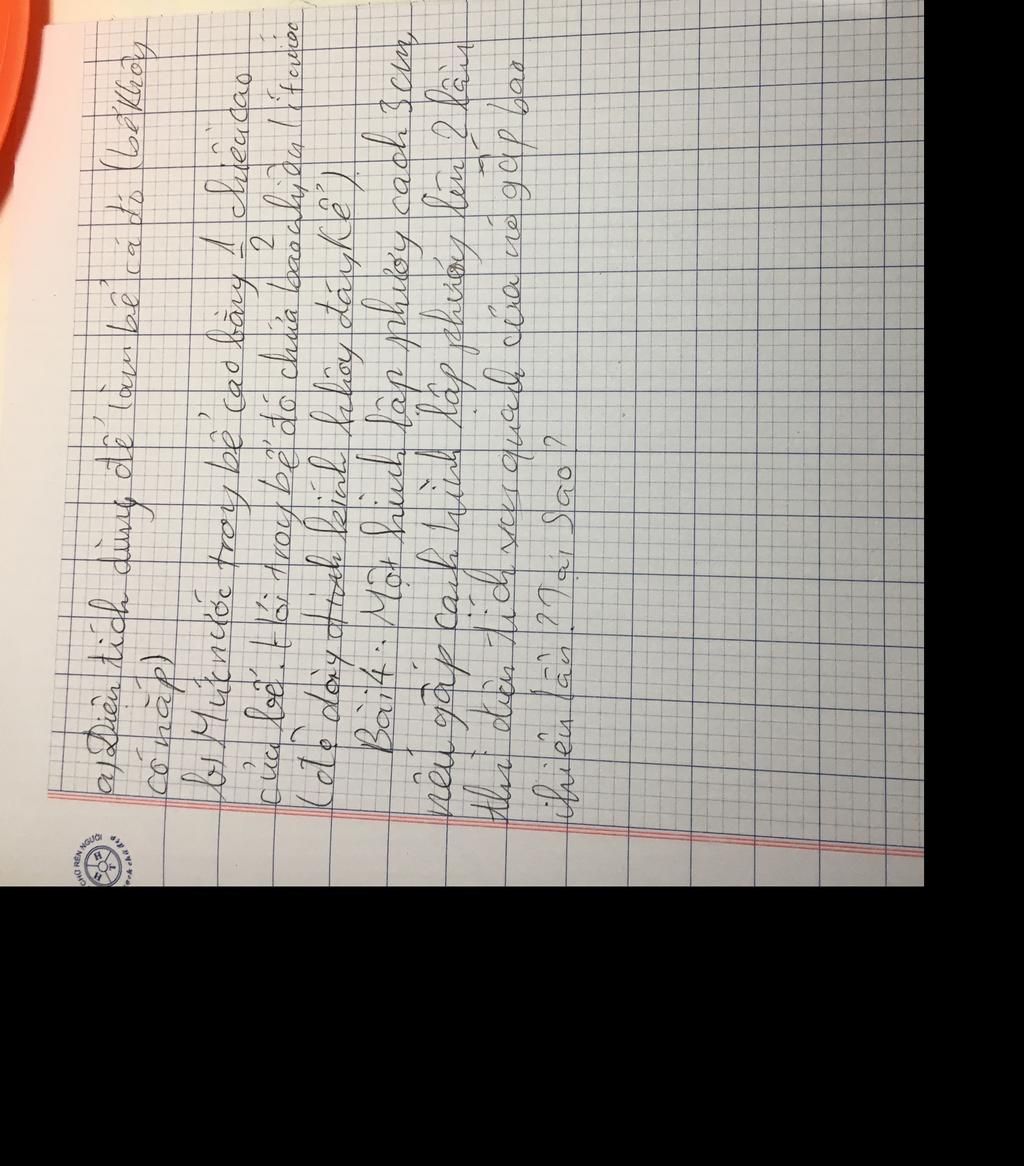 a) Diện tích dùng để làm bể cá đó (bể không
có nắp)
b) Mức nước trong bể cao bằng 1/2 chiều cao
của bể. Hỏi trong bể đó chứa bao nhiêu lít nước
(độ dày kính không đáng kể)
Bài 4: Một hình lập phương cạnh 3cm,
nếu gấp cạnh hình lập phương lên 2 lần
thì diện tích xung quanh của nó gấp bao
nhiêu lần? Tại sao?
RÈN NGƯỜI